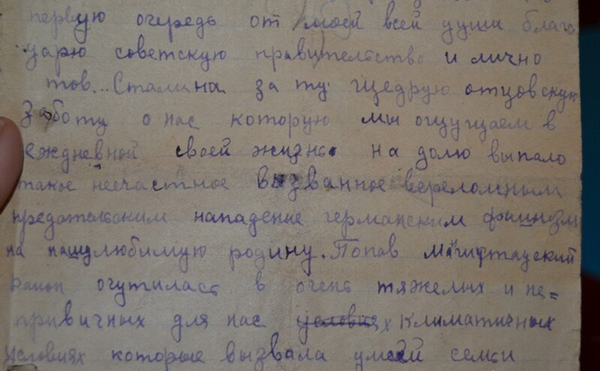 первую очередь от моей всей души благо
дарю советскую правительство и лично
тов... Сталина за ту щедрую отцовскую
Заботу о нас которую мы ощущаем в
еждневной своей жизне. на долю выпало
такое несчастное вызванное вереломным
предательским нападение германским фашизм
на нашу любимую родину. Попав
район очутилась в очень тяжелых и не=
привичных для нас условиях климатичных
условиях которые вызвала у моей семьи